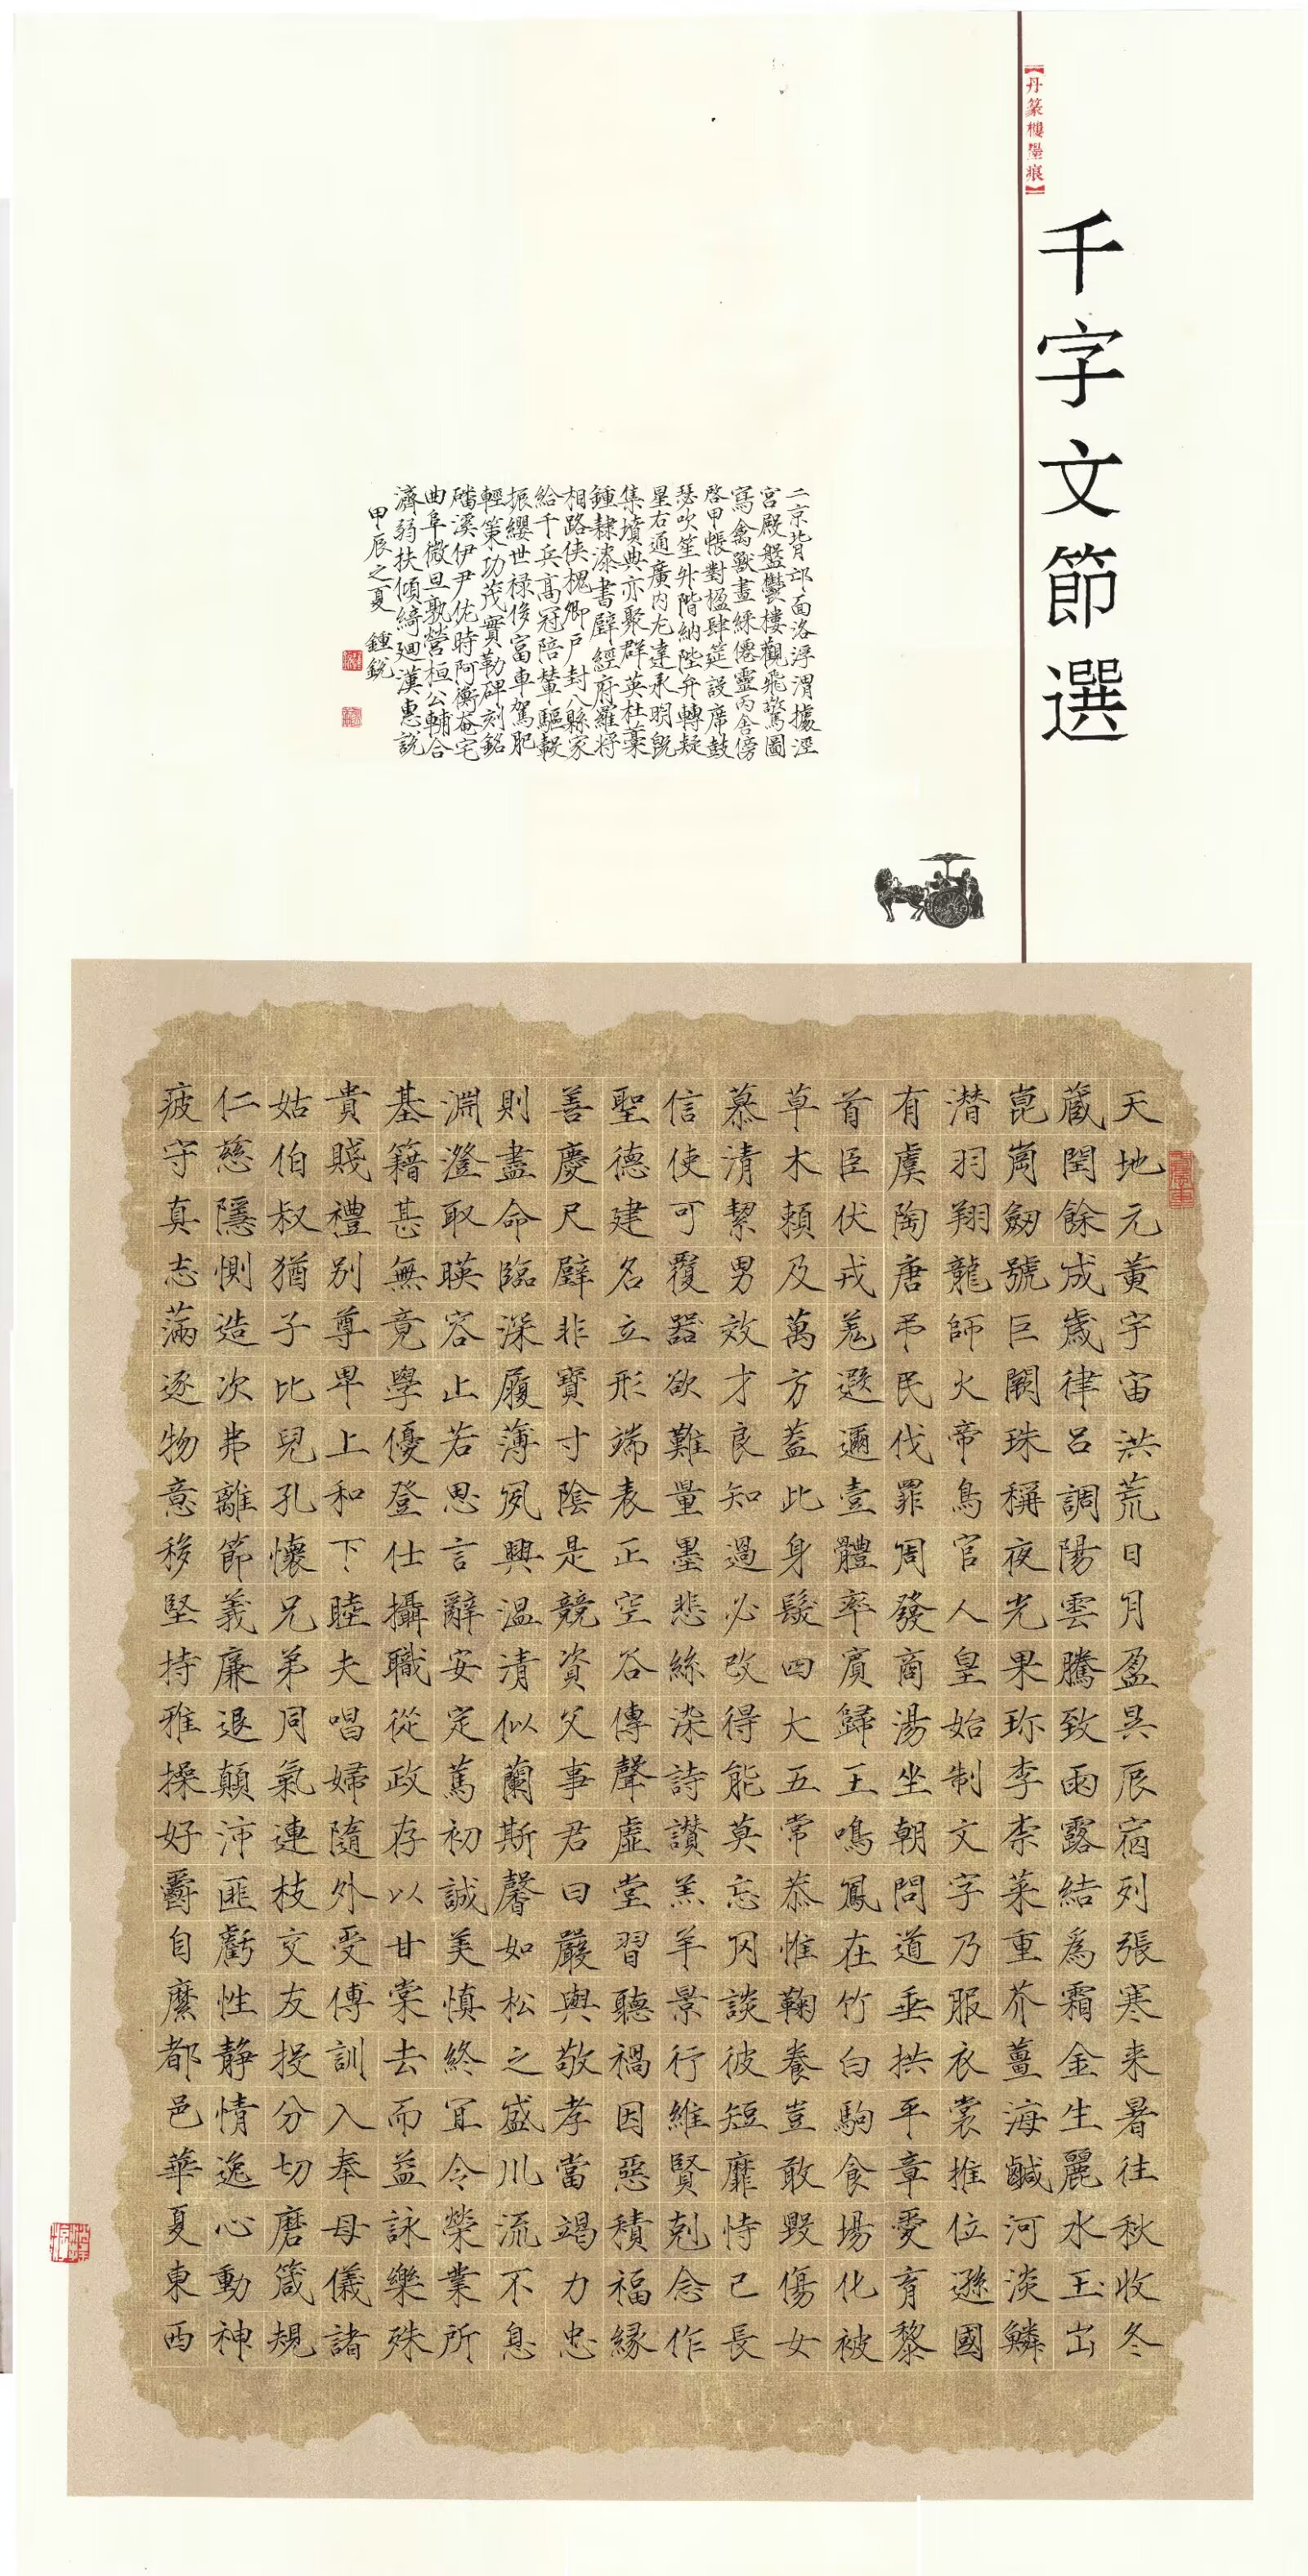 【丹篆樓墨痕】
千字文節選
二京背邙面洛浮渭據涇
宮殿盤鬱樓觀飛驚圖
寫禽獸畫綵僊靈丙舍傍
啓甲帳對楹肆筵設席鼓
瑟吹笙升階納陛弁轉疑
星右通廣内左達承明既
集墳典亦聚群英杜藁
鍾隸漆書壁經府羅将
相路俠槐卿戶封八縣家
給千兵高冠陪輦驅轂
振纓世禄侈富車駕肥
輕策功茂實勒碑刻銘
磻溪伊尹佐時阿衡奄宅
曲阜微旦孰營桓公輔合
濟弱扶傾綺廻漢惠説
甲辰之夏 鍾銳
天地元黃宇宙洪荒日月盈昃辰宿列張寒来暑往秋收冬
蔵閏餘成歲律吕調陽雲騰致雨露結爲霜金生麗水玉出
崑崗劒號巨闕珠稱夜光果珎李柰菜重芥薑海鹹河淡鱗
潜羽翔龍師火帝鳥官人皇始制文字乃服衣裳推位遜國
有虞陶唐弔民伐罪周發商湯坐朝問道垂拱平章愛育黎
首臣伏戎羌遐邇壹體率賓歸王鳴鳳在竹白駒食場化被
草木頼及萬方蓋此身髮四大五常恭惟鞠養豈敢毀傷女
慕清絜男效才良知過必改得能莫忘罔談彼短靡恃己長
信使可覆器欲難量墨悲絲染詩讃羔羊景行維賢剋念作
聖德建名立形端表正空谷傳聲虚堂習聽禍因惡積福縁
善慶尺璧非寶寸陰是競資父事君曰嚴與敬孝當竭力忠
則盡命臨深履薄夙興温清似蘭斯馨如松之盛川流不息
淵澄取暎容止若思言辭安定篤初誠美慎終宜令榮業所
基籍甚無竟學優登仕攝職從政存以甘棠去而益詠樂殊
貴賤禮别尊卑上和下睦夫唱婦隨外受傅訓入奉母儀諸
姑伯叔猶子比兒孔懷兄弟同氣連枝交友投分切磨箴規
仁慈隱惻造次弗離節義廉退顛沛匪虧性静情逸心動神
疲守真志滿逐物意移堅持雅操好爵自縻都邑華夏東西